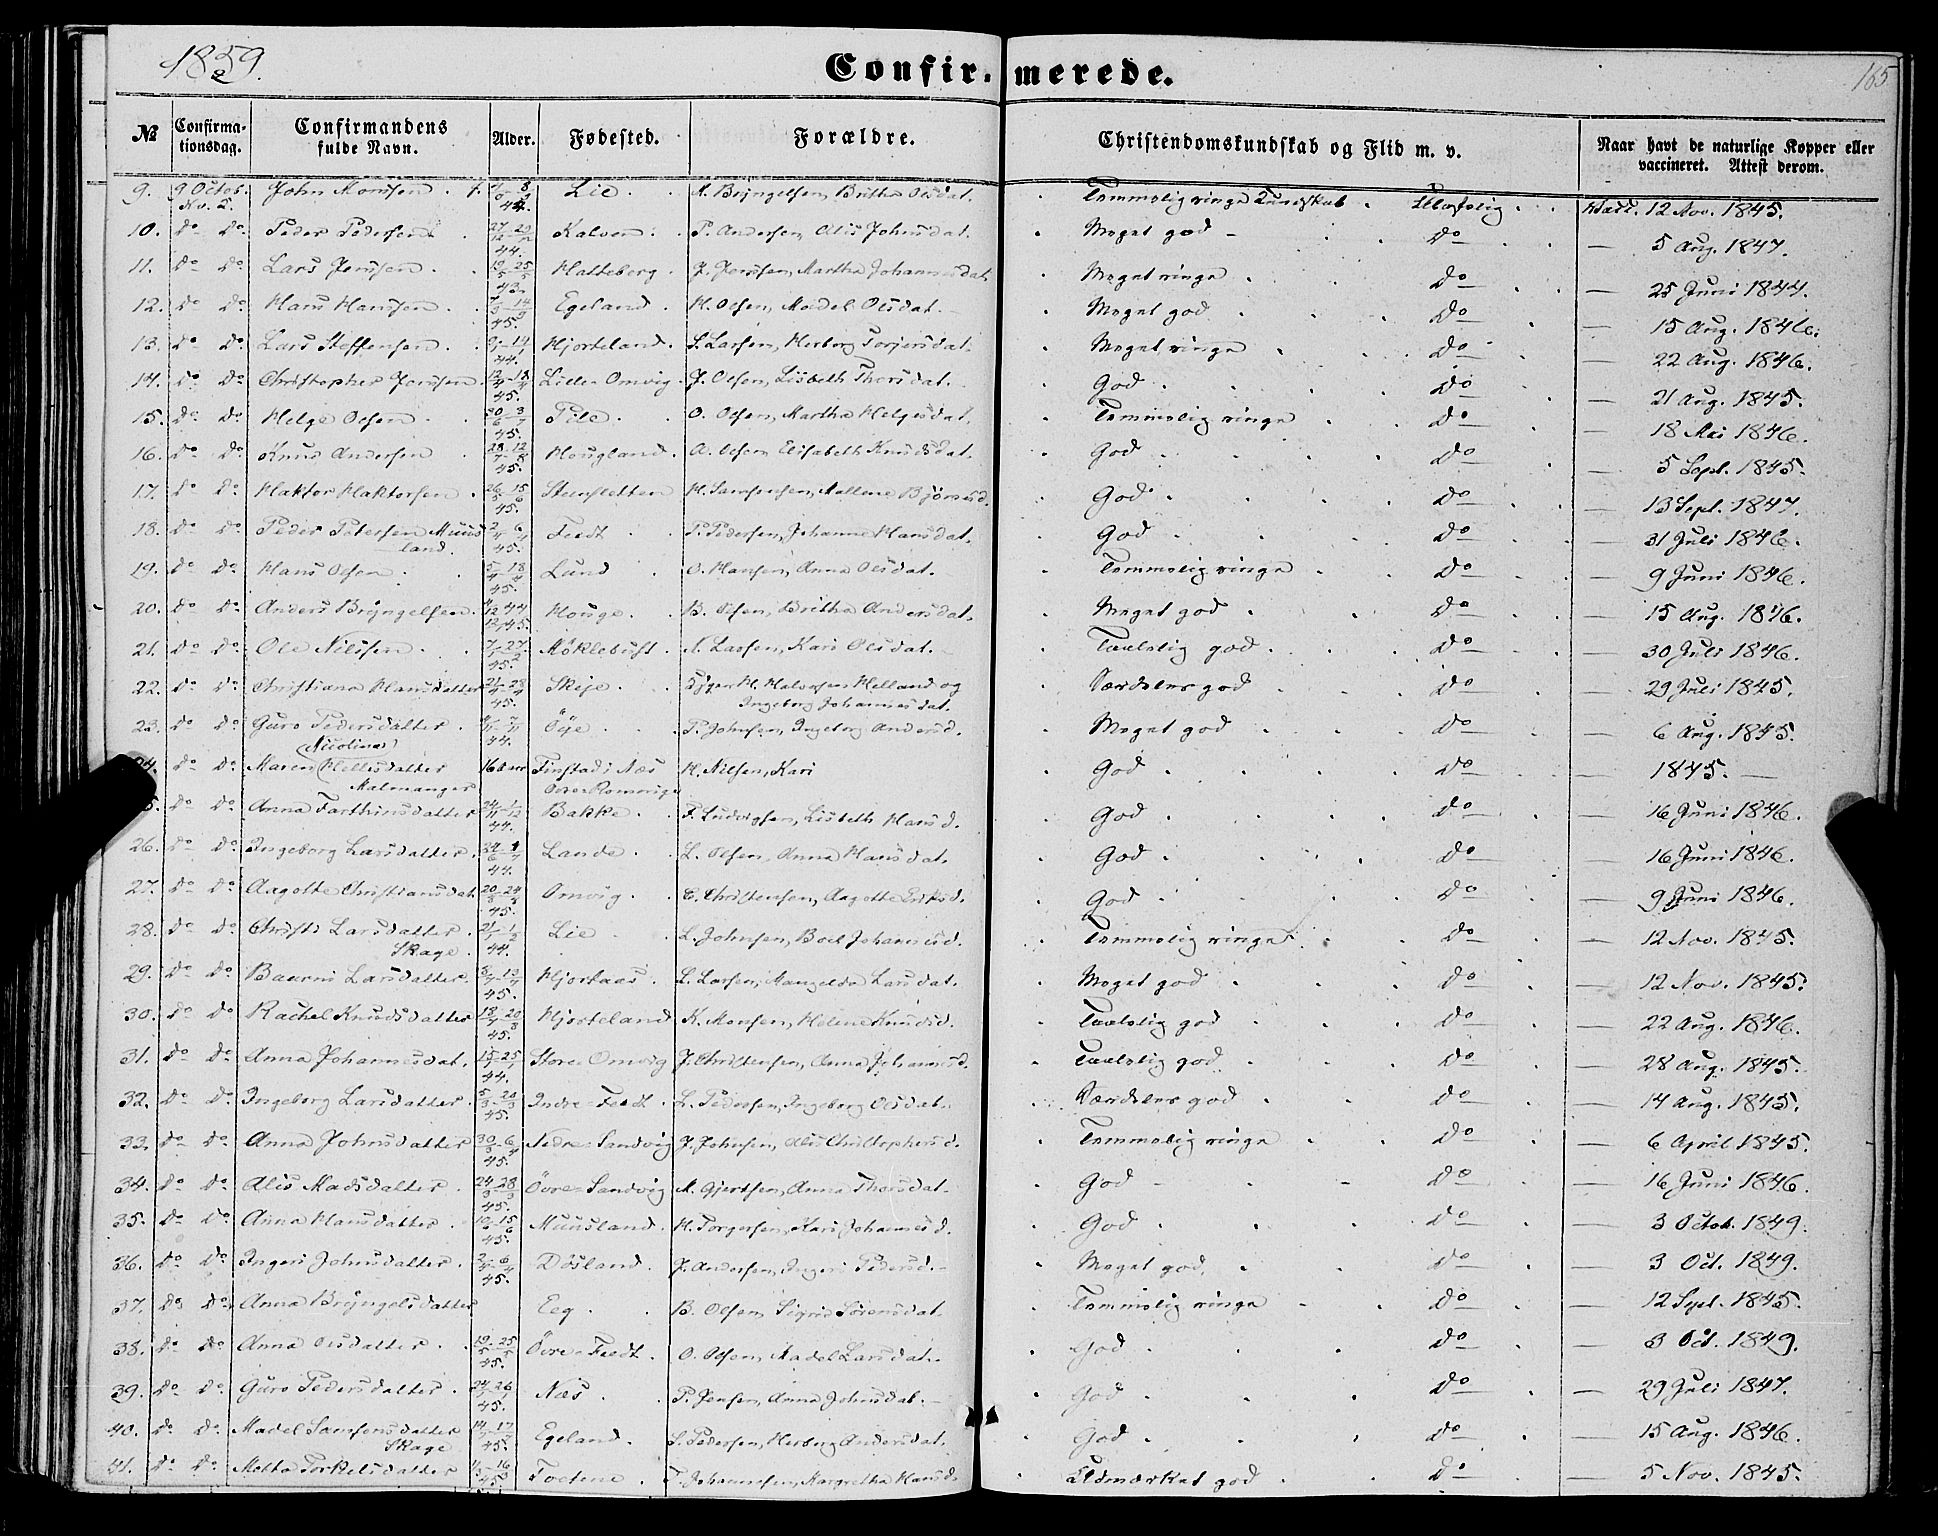 1859.
Confirmerede.
165
№ Confirmationsdag. Confirmandens fulde Navn. Alder. Fødested. Forældre. Christendomskundskab og Flid m. v. Naar havt de naturlige Kopper eller vaccineret. Attest derom.
9. 9 Octob. John Monsen Lie M. Bryngelsen, Britha Olsdat. Temmelig ringe Kundskab Vacc. 12 Nov. 1845.
10. Do Do Peder Pedersen 44. Kalven P. Andersen, Alis Johnsdat. Meget god Do — 5 Aug. 1847.
11. Do Do Lars Jensen 43. Hatteberg J. Jensen, Martha Johannesdat. Meget ringe Do — 25 Juni 1847.
12. Do Do Hans Hansen 45. Egeland H. Olsen, Madel Olsdat. Meget god Do — 15 Aug. 1846.
13. Do Do Lars Steffensen 44. Hjorteland S. Larsen, Herborg Torjersdat. Meget ringe Do — 22 Aug. 1846.
14. Do Do Christopher Jensen 45. Lille Omvig J. Olsen, Lisbeth Thorsdat. God Do — 21 Aug. 1845.
15. Do Do Helge Olsen 45. O. Olsen, Martha Helgesdat. Temmelig ringe Do — 18 Mai 1846.
16. Do Do Knud Andersen 45. Hougland A. Olsen, Elisabeth Knudsdat. God Do — 5 Sept. 1845.
17. Do Do Haktor Haktorsen 45. Steensletten H. Samsonsen, Mallene Bjørnsd. God Do — 13 Sept. 1847.
18. Do Do Peder Petersen Muusland. 45. Feedt P. Pedersen, Johanne Hansdat. God Do — 31 Juli 1846.
19. Do Do Hans Olsen 45. Lund O. Hansen, Anna Olsdat. Temmelig ringe Do — 9 Juni 1846.
20. Do Do Anders Bryngelsen Houge B. Olsen, Britha Andersdat. Meget god Do — 15 Aug. 1846.
21. Do Do Ole Nilssen 45 Møklebust N. Larsen, Kari Olsdat. Taalelig god Do — 30 Juli 1846.
22. Do Do Christiana Hansdatter 45. Skeje H. Halvorsen Helland og Ingeborg Johannesdat. Særdeles god Do — 29 Juli 1845.
23. Do Do Guro Pedersdatter 44. Øye P. Johnsen, Ingeborg Andersd. Meget god Do — 6 Aug. 1845.
24. Do Do Maren (Nicoline) Helles datter Malmanger 16 Finstad i Næs Øvre Romerige H. Nilsen, Kari God Do — 1845.
25. Do Do Anna Farthinsdatter 44. Bakke F. Ludvigsen, Lisbeth Hansd. God Do — 16 Juni 1846.
26. Do Do Ingeborg Larsdatter 44. Lande L. Olsen, Anna Hansdat. God Do — 16 Juni 1846.
27. Do Do Aagotte Christiansdat. 45. Omvig C. Christensen, Aagotte Eriksd. God Do — 9 Juni 1846.
28. Do Do Christi Larsdatter Skage 44. Lie L. Johnsen, Boel Johannesd. Temmelig ringe Do — 12 Nov. 1845.
29. Do Do Baurni Larsdatter 45. Hjortaas L. Larsen, Mangelda Larsdat. Meget god Do — 12 Nov. 1845.
30. Do Do Rachel Knudsdatter 45. Hjorteland K. Monsen, Helene Knudsd. Taalelig god Do — 22 Aug. 1846.
31. Do Do Anna Johannesdat. 44. Store Omvig J. Christensen, Anna Johannesd. Taalelig god Do — 28 Aug. 1845.
32. Do Do Ingeborg Larsdatter 45. Indre-Feedt L. Pedersen, Ingeborg Olsdat. Særdeles god Do — 14 Aug. 1845.
33. Do Do Anna Johnsdatter 45. Nedre-Sandvig J. Johnsen, Alis Christophersd. Temmelig ringe Do — 6 April 1845.
34. Do Do Alis Madsdatter 45. Øvre-Sandvig M. Gjertsen, Anna Thorsdat. God Do — 16 Juni 1846.
35. Do Do Anna Hansdatter 45. Muusland H. Torgersen, Kari Johannesd. God Do — 3 Octob. 1849.
36. Do Do Ingeri Johnsdatter 45. Døsland J. Andersen, Ingeri Pedersd. Meget god Do — 3 Oct. 1849.
37. Do Do Anna Bryngelsdatter Eeg B. Olsen, Sigrid Sørensdat. Temmelig ringe Do — 12 Sept. 1845.
38. Do Do Anna Olsdatter 45. Øvre-Feedt O. Olsen, Madel Larsdat. God Do — 3 Oct. 1849.
39. Do Do Guro Pedersdatter 45. Næs P. Jensen, Anna Johnsdat. God Do — 29 Juli 1847.
40. Do Do Madel Samsonsdatter Skage 45. Egeland S. Pedersen, Herborg Andersdat. God Do — 15 Aug. 1846.
41. Do Do Metta Torkelsdatter 45. T. Johannesen, Margretha Hansd. Udmærket god Do — 5 Nov. 1845.